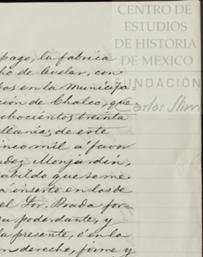 CENTRO DE
ESTUDIOS
DE HISTORIA
DE MEXICO
FUNDACIÓN
Carlos Slim
pago, la fábrica
de Avelar, con
en la Municipa
ción de Chalco, que
ochocientos treinta
de este
cinco mil a favor
Monjardin,
que se me
inserto en los de
el Sor. Prada por
su poderdante, y
la presente, é en la
derecho, firme y